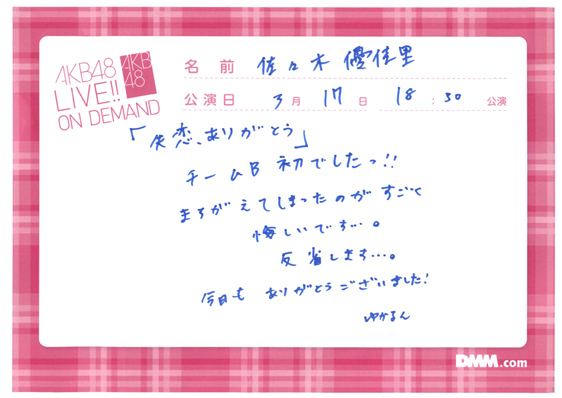 AKB48
LIVE!!
ON DEMAND
AKB
48
名前 佐々木優佳里
公演日 3月17日 18:30公演
「失恋、ありがとう」
チームB 初でしたっ!!
まちがえてしまったのがすごく
悔しいです…。
反省します…。
今日も ありがとうございました!
ゆかるん
DMM.com